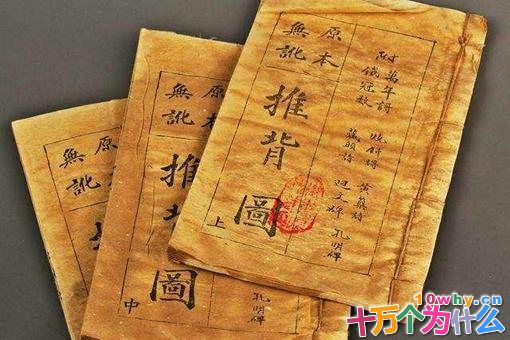 附
萬年詩
鐵冠數
燒餅詩
藏頭詩
黃蘗詩
孔明碑
原本
無訛
推背圖
上
原本
無訛
推背圖
中
孔明碑
原本
無訛
10why.cn
十万个为什么